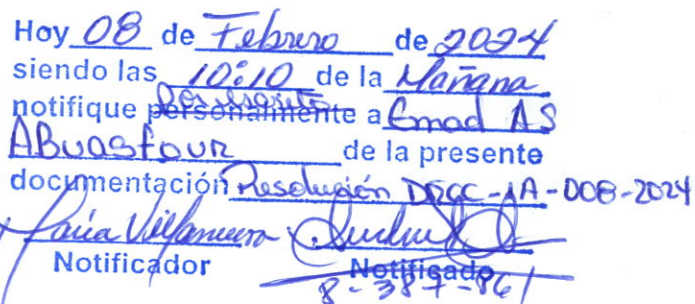 Hoy 08 de Febrero de 2024
siendo las 10:10 de la Mañana
Por escrito
notifique personalmente a Emad AS
ABuasfour de la presente
documentación Resolución DRCC-IA-008-2024
Notificador Notificado
8-387-861